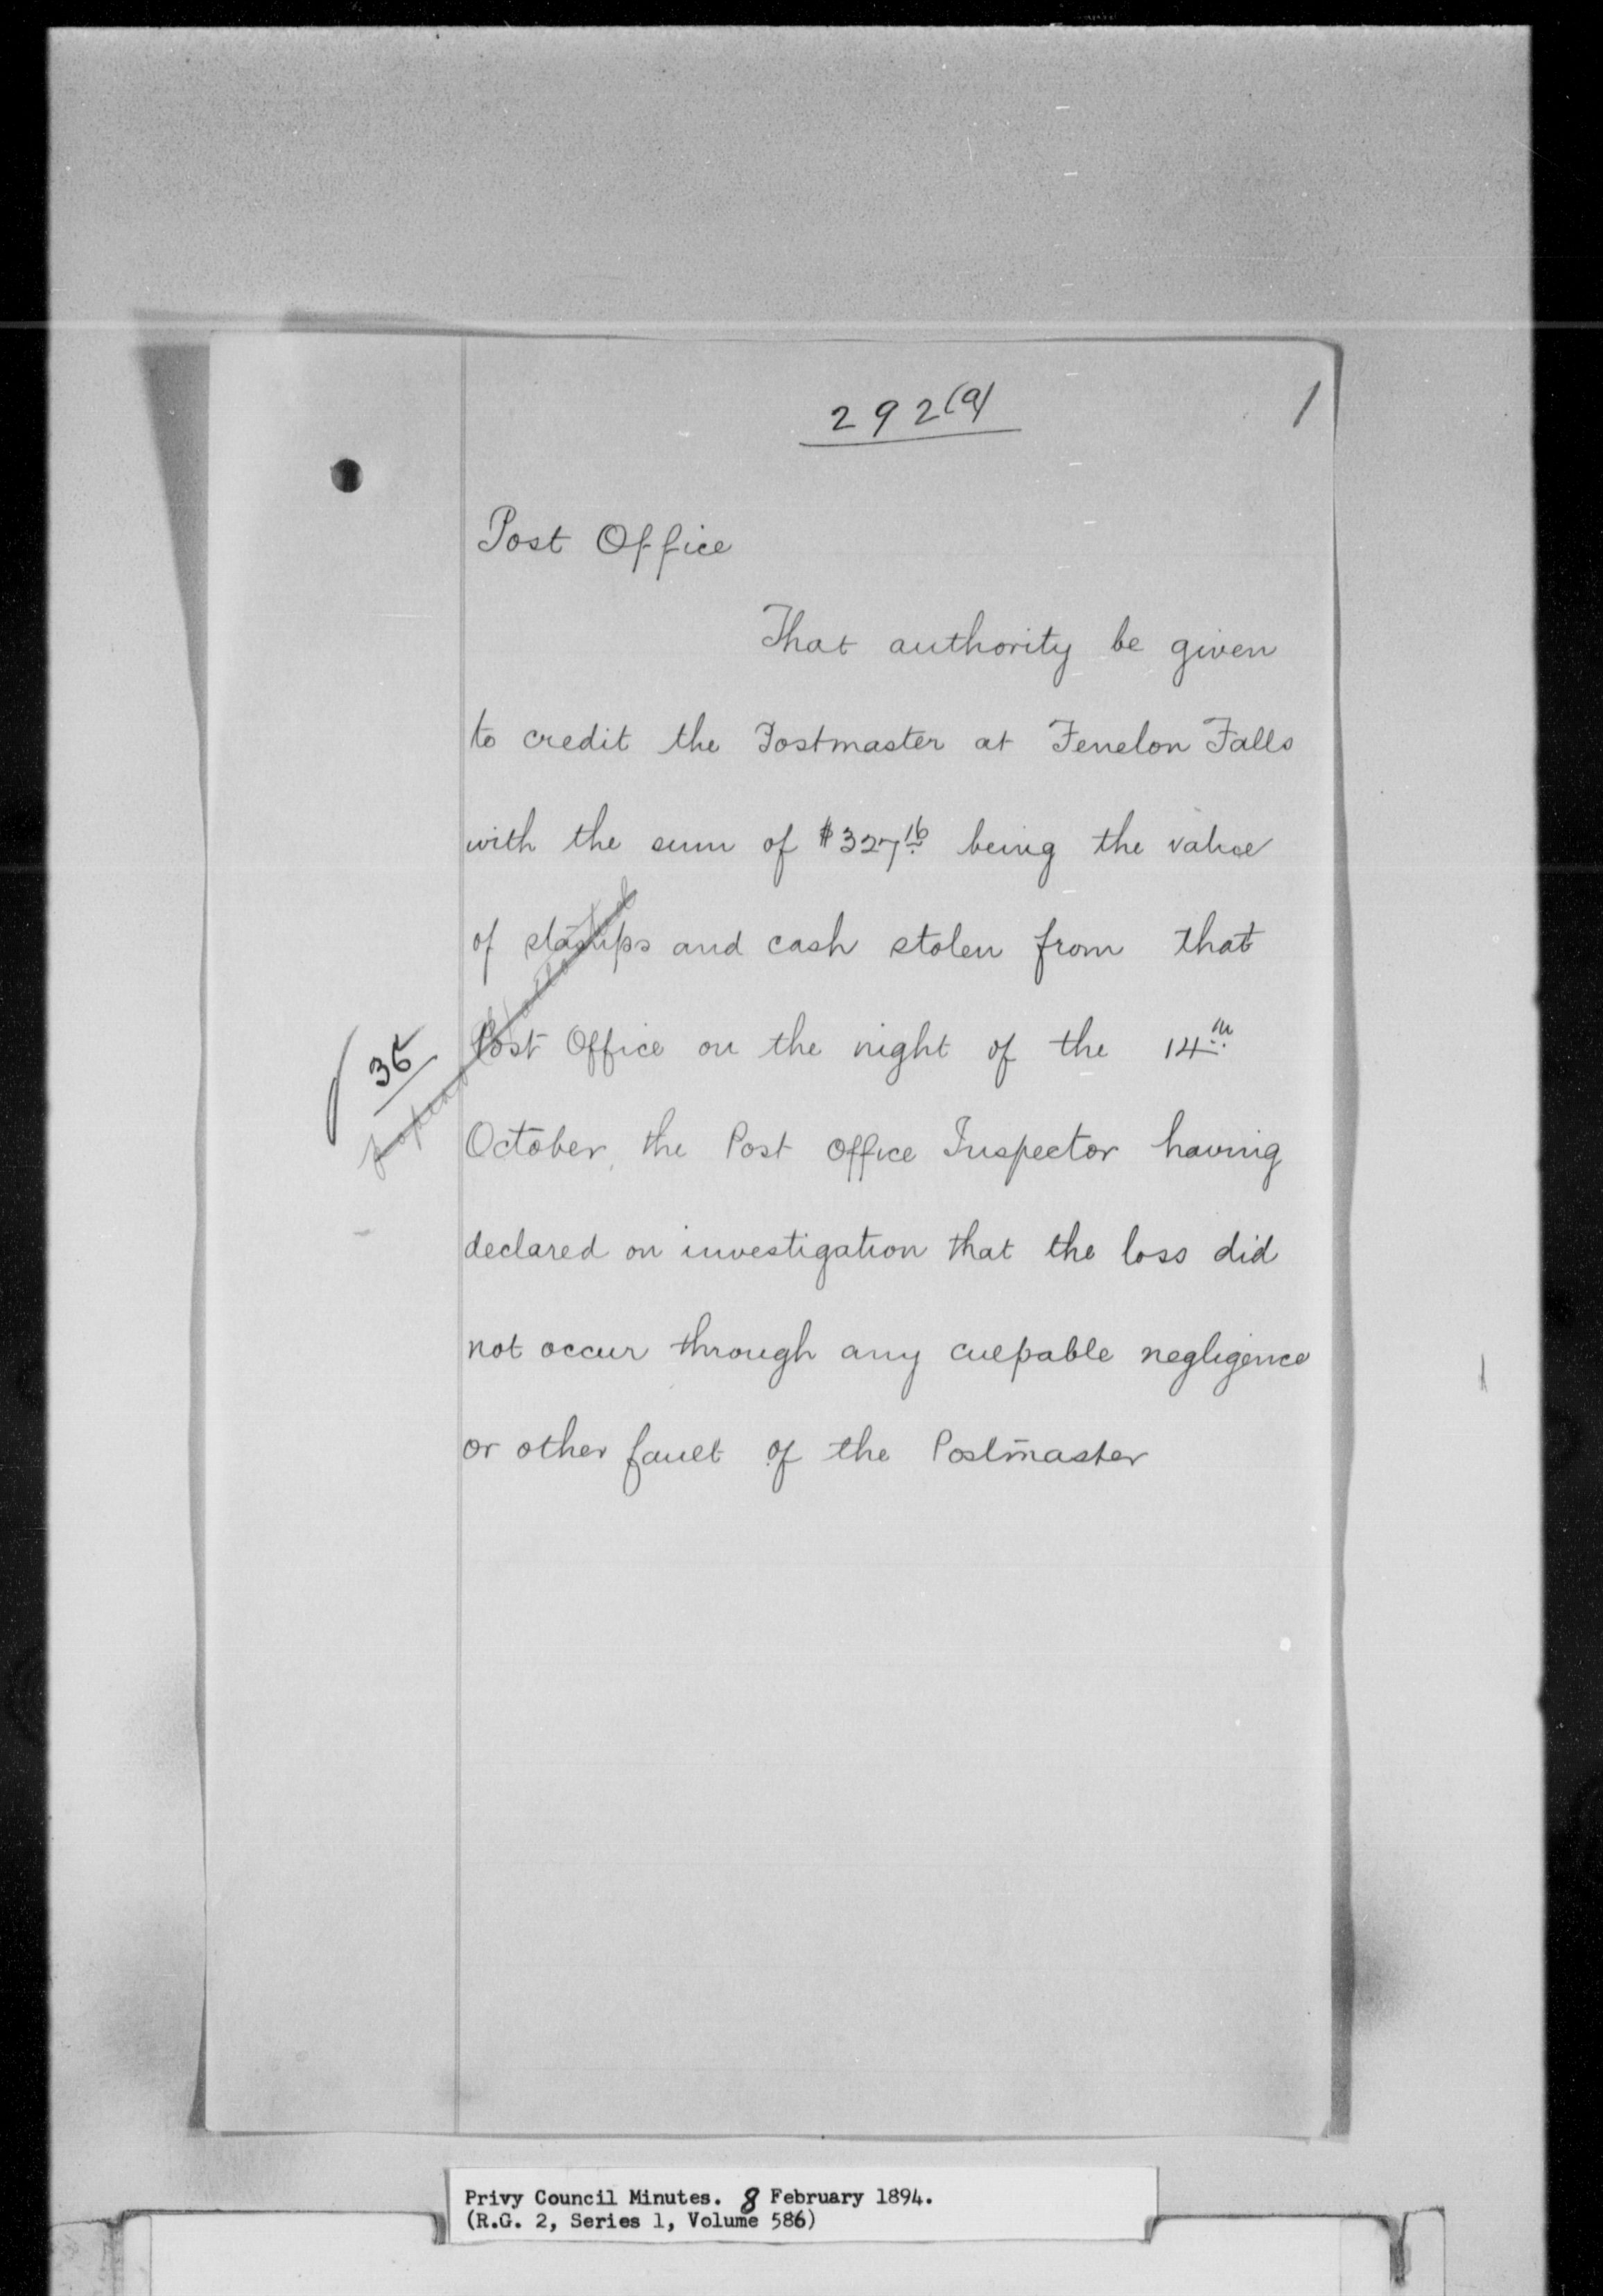 292(a)
1
Post Office
That authority be given
to credit the Postmaster at Fenelon Falls
with the sum of $327 16 being the value
of stamps and cash stolen from that
Post Office on the night of the 14th
35
October, the Post Office Inspector having
declared on investigation that the loss did
not occur through any culpable negligence
or other fault of the Postmaster
Privy Council Minutes. 8 February 1894.
(R.G. 2, Series 1, Volume 586)